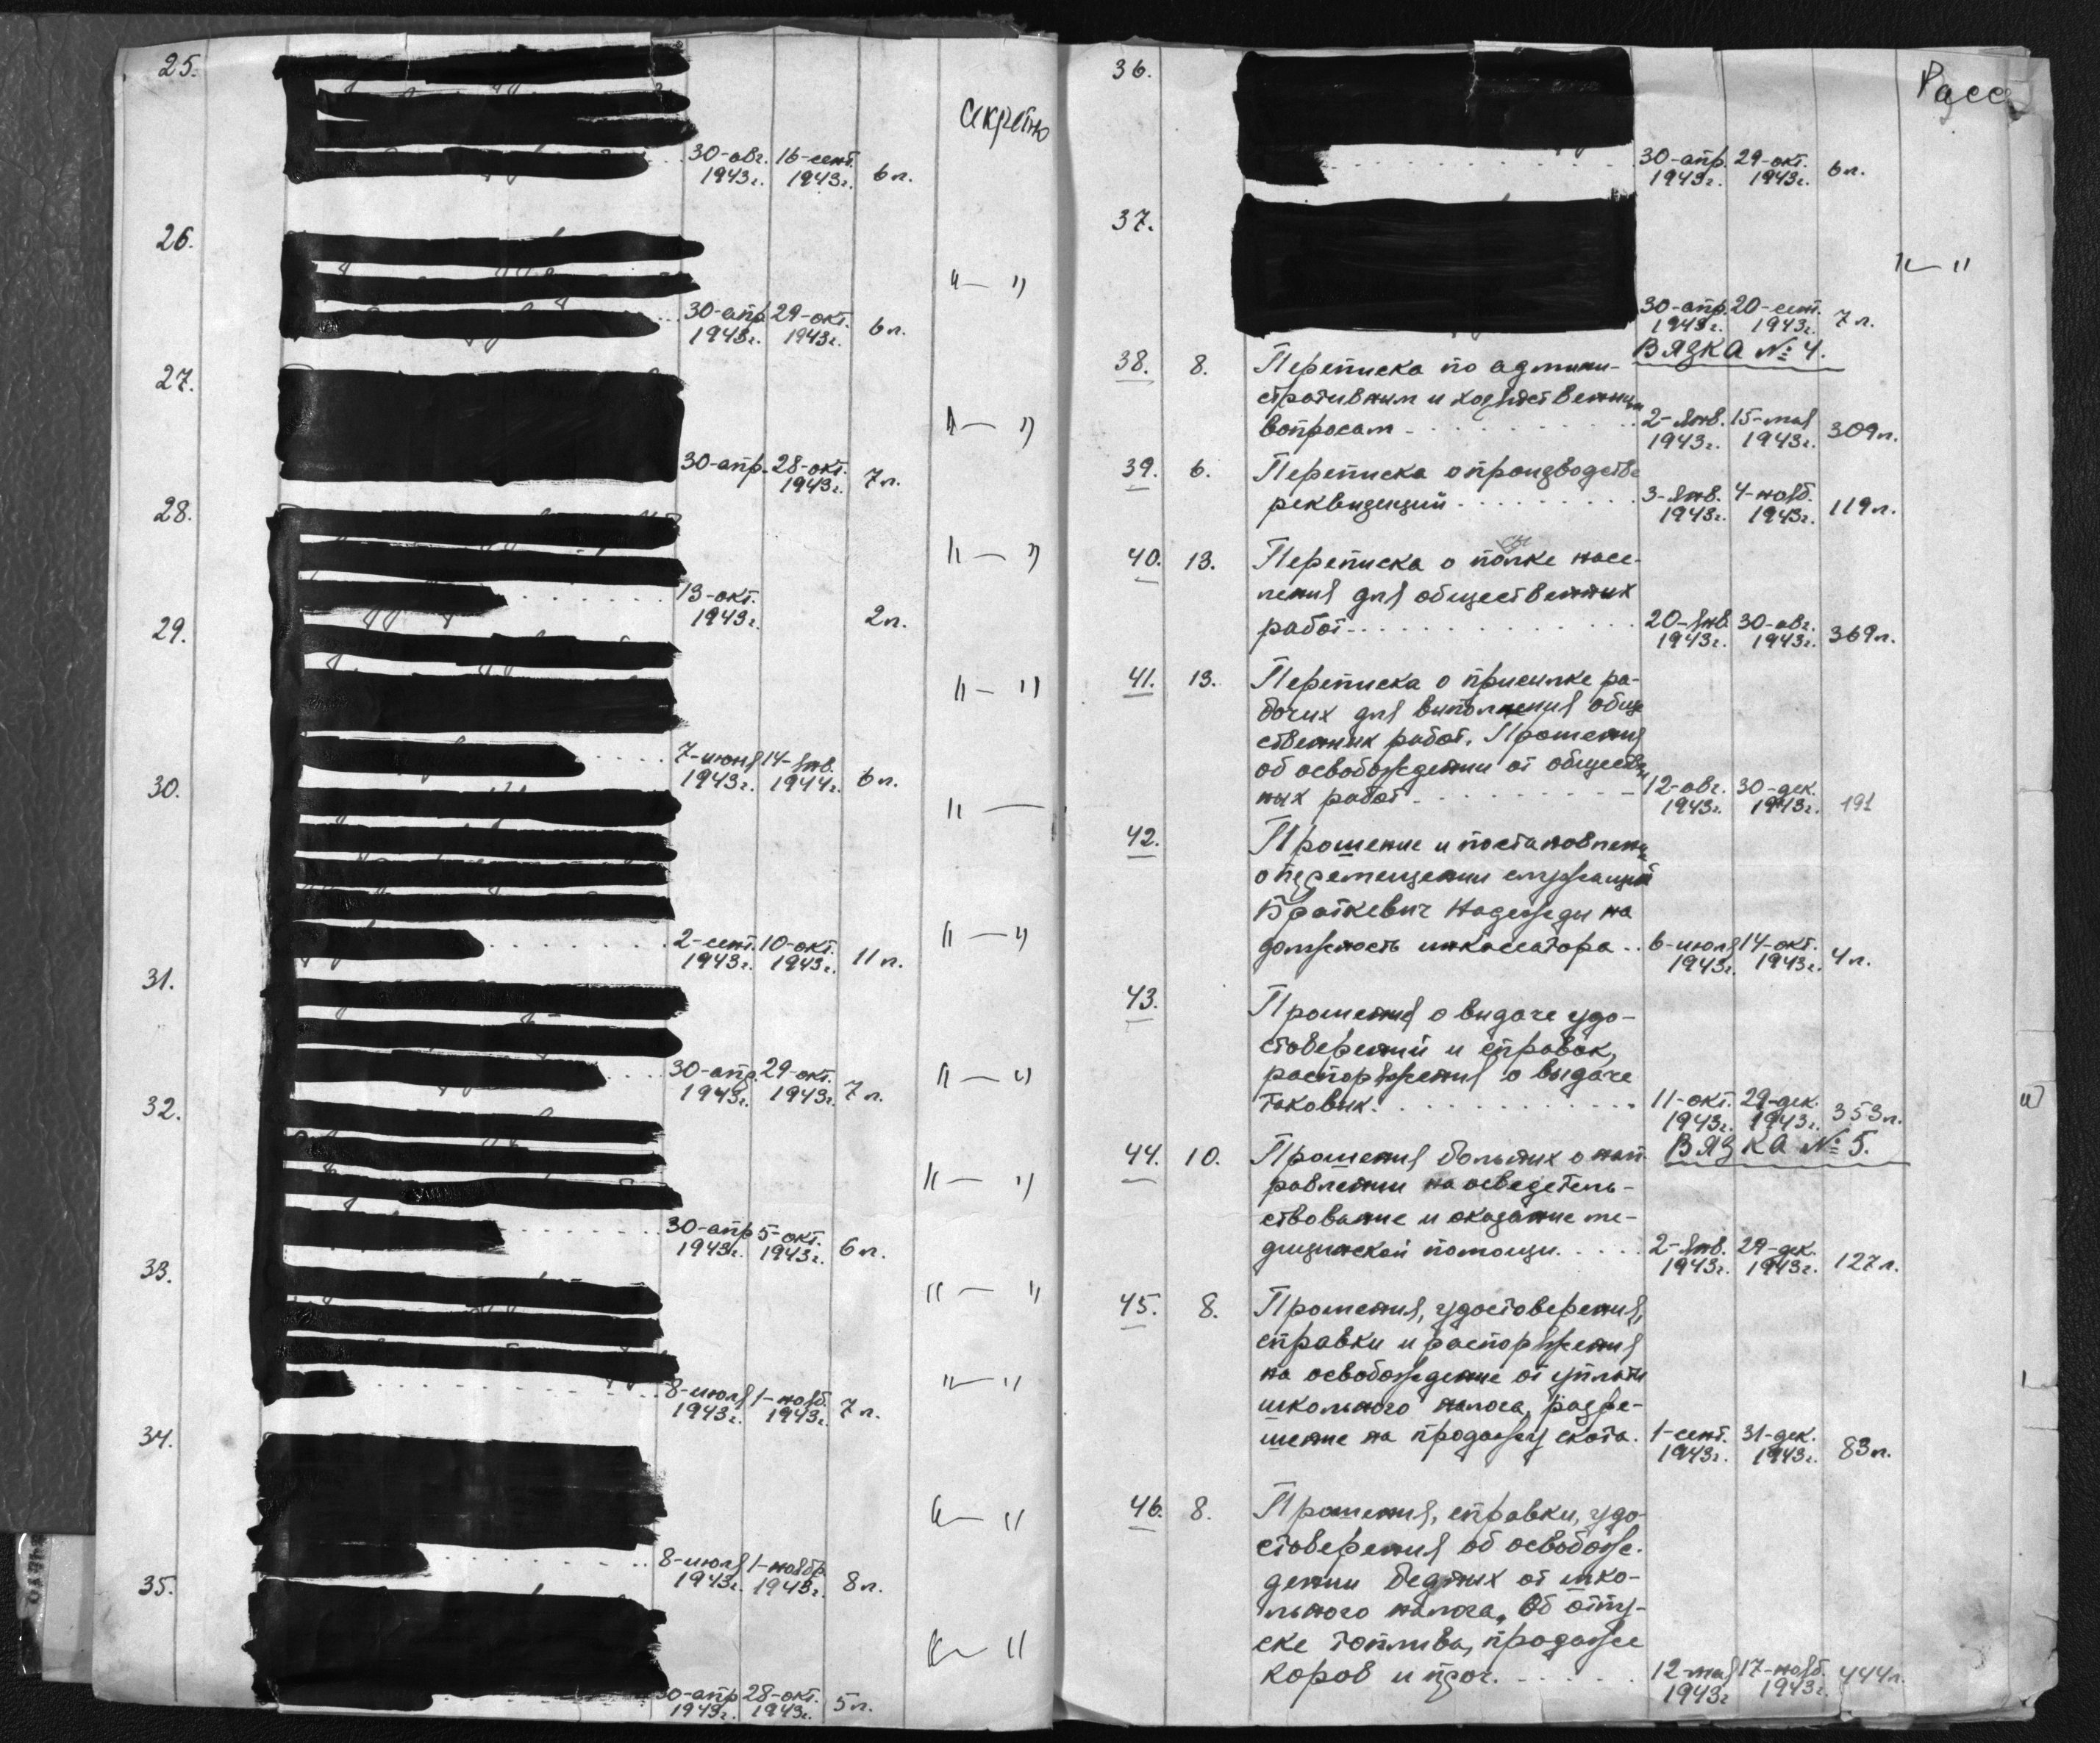 25.
Секретно
30-авг. 16-сент.
1943г. 1943г. 6л.
26.
"— "
30-апр. 29-окт.
1943г. 1943г. 6л.
27.
"— "
30-апр. 28-окт.
1943г. 7л.
28.
"— "
13-окт.
1943г. 2л.
29.
"— "
7-июня 14-янв.
1943г. 1944г. 6л.
30.
"—
"— "
2-сент. 10-окт.
1943г. 1943г. 11л.
31.
30-апр. 29-окт.
1943г. 1943г. 7л.
"— "
32.
"— "
30-апр 5-окт.
1943г. 1943г. 6л.
33.
"— "
"— "
8-июля 1-нояб.
1943г. 1943г. 7л.
34.
"— "
8-июля 1-ноябр.
1943г. 1943г. 8л.
35.
"— "
30-апр 28-окт.
1943г. 1943г. 5л.
36.
30-апр. 29-окт.
1943г. 1943г. 6л.
37.
"— "
30-апр. 20-сент.
1943г. 1943г. 7л.
Вязка № 4.
38. 8. Переписка по админи-
стративным и хозяйственным
вопросам 2-янв. 15-мая
1943г. 1943г. 309л.
39. 6. Переписка о производстве
реквизиций 3-янв. 4-нояб.
1943г. 1943г. 119л.
40. 13. Переписка о насе-
ления для общественных
работ 20-янв. 30-авг.
1943г. 1943г. 369л.
41. 13. Переписка о присылке ра-
бочих для выполнения обще
ственных работ. Прошения
об освобождении от обществен
ных работ 12-авг. 30-дек.
1943г. 1943г. 191
42. Прошение и постановление
о перемещении служащей
Браткевич Надежды на
должность инкассатора 6-июля 14-окт.
1943г. 1943г. 4л.
43. Прошения о выдаче удо-
стоверений и справок,
распоряжения о выдаче
таковых. 11-окт. 29-дек.
1943г. 1943г. 353л.
Вязка № 5.
44. 10. Прошения больных о нап
равлении на осведетель-
ствование и оказание ме-
дицинской помощи. 2-янв. 29-дек.
1943г. 1943г. 127л.
45. 8. Прошения, удостоверения,
справки и распоряжения
на освобождение от уплаты
школьного налога, разре-
шение на продажу скота. 1-сент. 31-дек.
1943г. 1943г. 83л.
46. 8. Прошения, справки, удо-
стоверения об освобож-
дении бедных от шко-
льного налога. Об отпу-
ске топлива, продаже
коров и проч. 12-мая 17-нояб.
1943г 1943г. 444л.